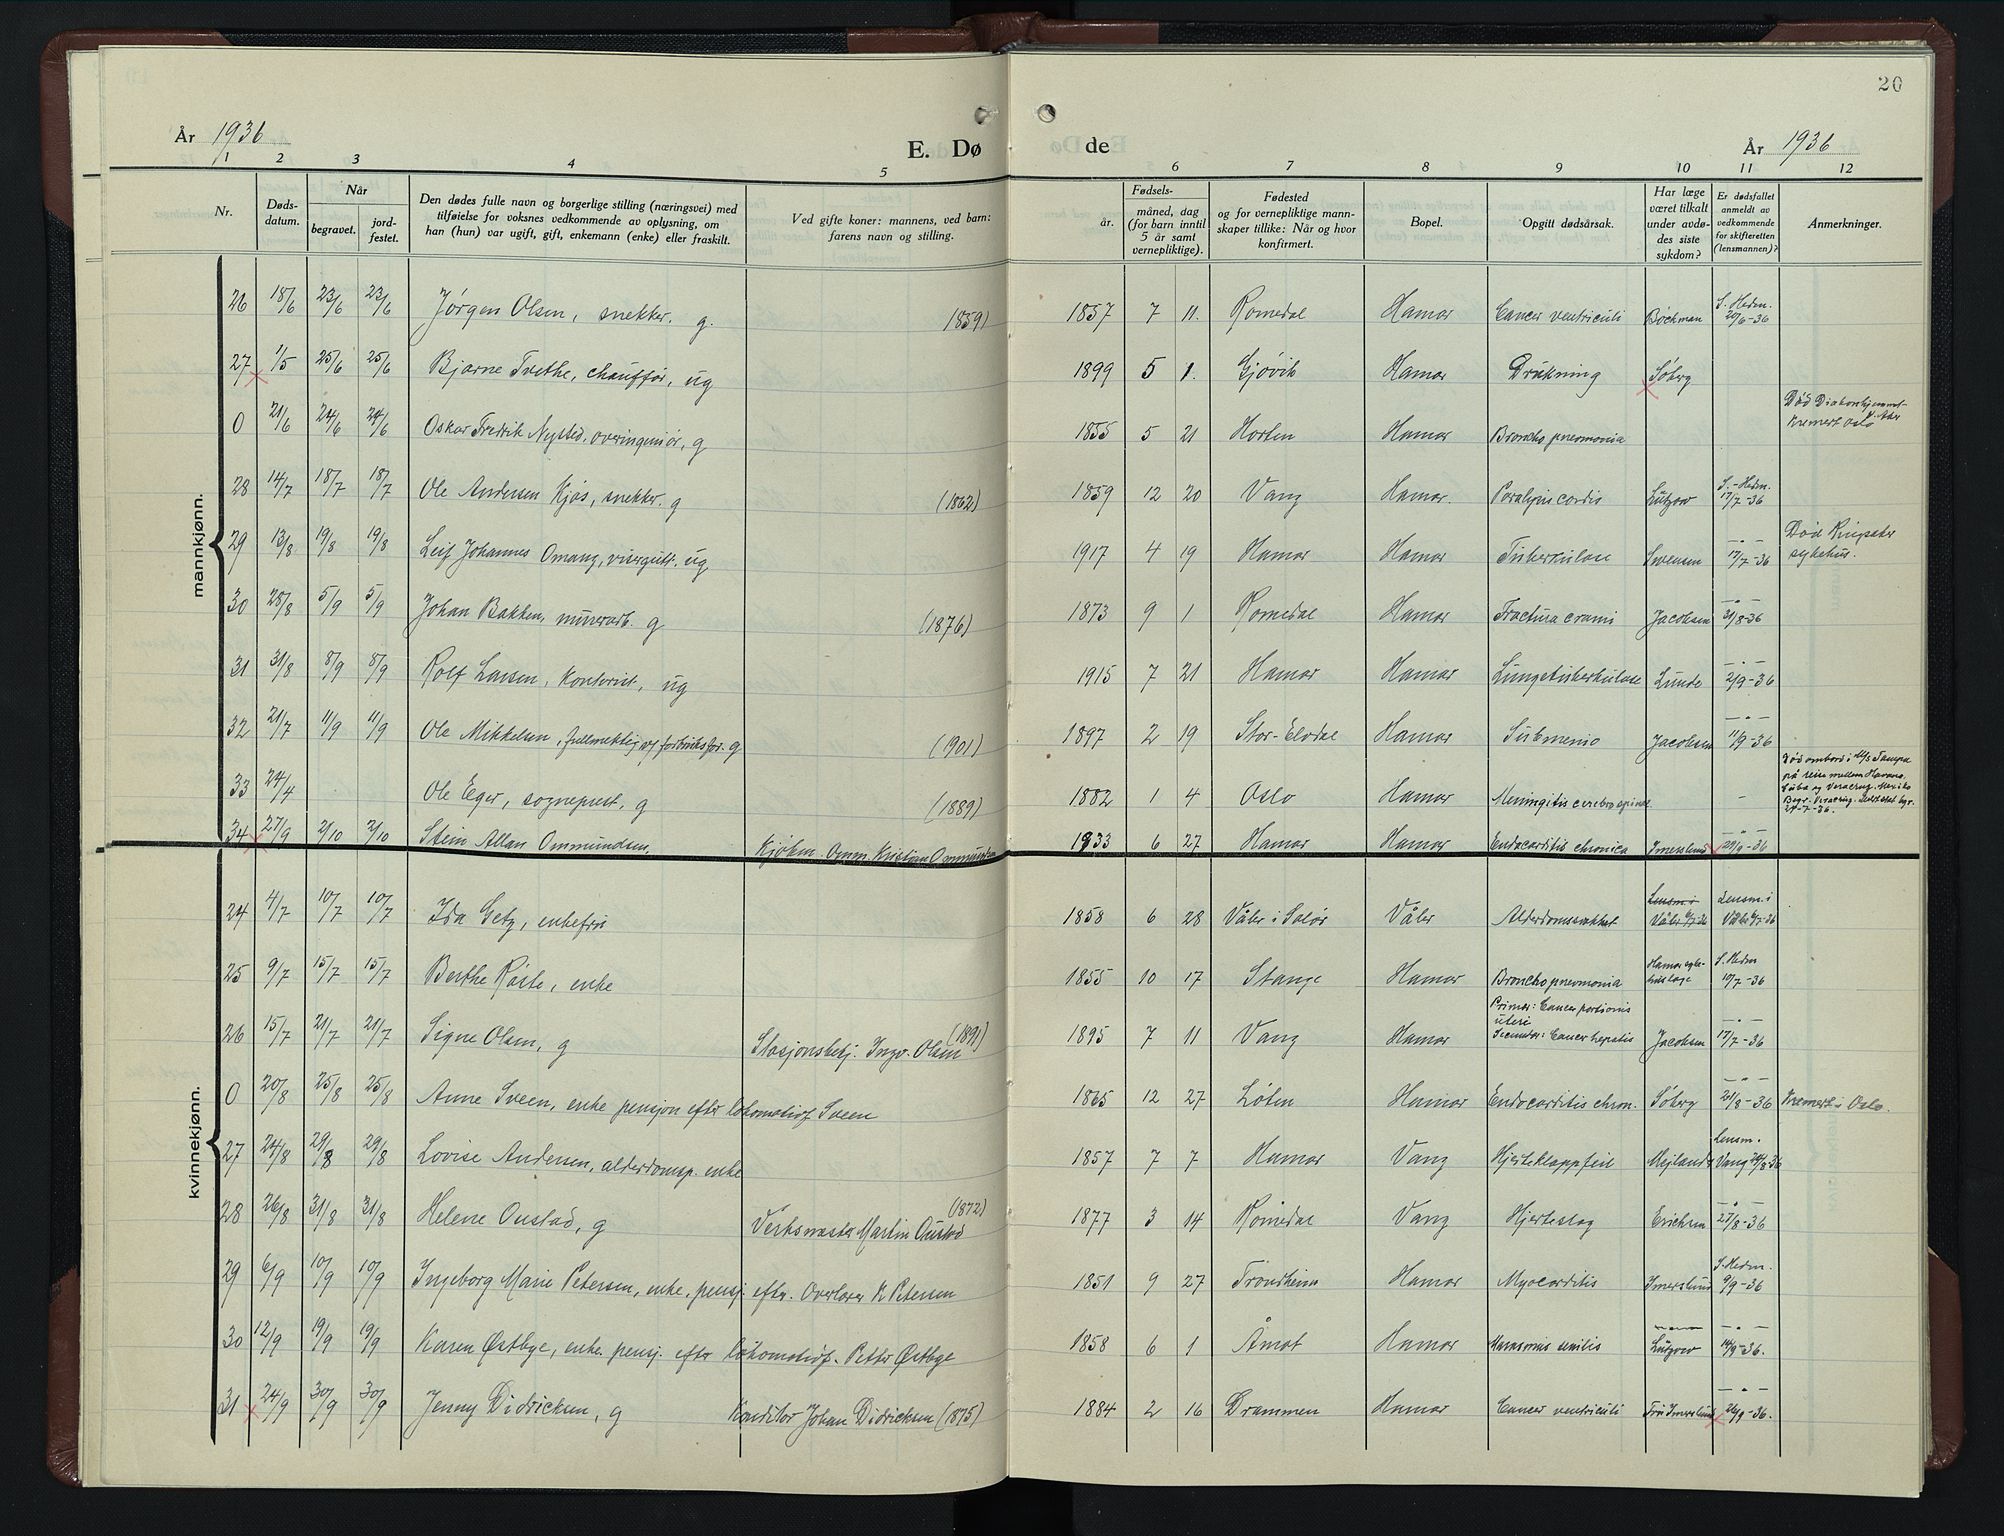 20
År 1936
E. Dø
de
År 1936
1 2 3 4 5 6 7 8 9 10 11 12
Nr.
Døds-
datum.
Når
begravet.
jord-
festet.
Den dødes fulle navn og borgerlige stilling (næringsvei) med
tilføielse for voksnes vedkommende av oplysning, om
han (hun) var ugift, gift, enkemann (enke) eller fraskilt.
Ved gifte koner: mannens, ved barn:
farens navn og stilling.
Fødsels-
år.
måned, dag
(for barn inntil
5 år samt
vernepliktige).
Fødested
og for vernepliktige mann-
skaper tillike: Når og hvor
konfirmert.
Bopel.
Opgitt dødsårsak.
Har læge
været tilkalt
under avdø-
des siste
sykdom?
Er dødsfallet
anmeldt av
vedkommende
for skifteretten
(lensmannen)?
Anmerkninger.
mannkjønn.
26 18/6 23/6 23/6 Jørgen Olsen, snekker. g. (1859) 1857 7 11. Romedal Hamar Cancer ventriculi Bøckman S. Hedm. 20/6-36
27 1/5 25/6 25/6 Bjarne Tvethe, chauffør, ug 1899 5 1. Gjøvik Hamar Drukning Søberg
0 21/6 24/6 24/6 Oskar Fredrik Nysted, overingeniør, g 1855 5 21 Horten Hamar Broncho pneumonia Død Diakonhjemmet Kremert Oslo
28 14/7 18/7 18/7 Ole Andersen Kjøs, snekker. g (1862) 1859 12 20 Vang Hamar. Paralysis cordis Lützow S.-Hedm. 17/7-36
29 13/8 19/8 19/8 Leif Johannes Omang, visergutt. ug 1917 4 19 Hamar Hamar Tuberkulose Swensen -"- 17/7-36 Død Ringsaker sykehus.
30 28/8 5/9 5/9 Johan Bakken, murerarb. g (1876) 1873 9 1 Romedal Hamar Fractura cranii Jacobsen -"- 31/8-36
31 31/8 8/9 8/9 Rolf Larsen, kontorist, ug 1915 7 21 Hamar Hamar Lungetuberkulose Lunde -"- 2/9-36
32 21/7 11/9 11/9 Ole Mikkelsen, fullmektig v/ forbruksfor. g (1901) 1897 2 19 Stor-Elvdal Hamar Submersio Jacobsen -"- 11/9-36
33 24/4 Ole Eger, sogneprest, g (1889) 1882 1 4 Oslo Hamar Meningitis cerebrospinal. - Død ombord i M/S Tampa på reise mellem Havana, Cuba og Veracruz, Mexiko Begr. Veracruz.
34 27/9 2/10 2/10 Stein Allan Ommundsen, Kjøbm. Omm. Kristian Ommundsen 1933 6 27 Hamar Hamar Endocarditis chronica Imerslund -"- 29/9-36
kvinnekjønn.
24 4/7 10/7 10/7 Ida Getz, enkefru 1858 6 28 Våler i Solør Våler Alderdomssvakhet Lensm. i Våler 6/7-36 Lensm. i Våler 6/7-36
25 9/7 15/7 15/7 Berthe Røste, enke 1855 10 17 Stange Hamar Bronchopneumonia Hamar syke-huslæge S. Hedm 10/7-36
26 15/7 21/7 21/7 Signe Olsen, g Stasjonsbetj. Ingv. Olsen (1891) 1895 7 11 Vang Hamar Primær: Cancer portionis uteri Secundær: Cancer hepatis Jacobsen -"- 17/7-36
0 20/8 25/8 25/8 Anne Sveen, enke pensjon efter lokomotivf. Sveen 1865 12 27 Løten Hamar Endocarditis chron. Søberg -"- 21/8-36 Kremert i Oslo.
27 24/8 29/8 29/8 Lovise Andersen, alderdomsp. enke 1857 7 7 Hamar Vang Hjerteklappfeil Mejlands Lensm. Vang 24/8-36
28 26/8 31/8 31/8 Helene Oustad, g Verksmester Martin Oustad (1872) 1877 3 14 Romedal Vang Hjerteslag Erichsen -"- 27/8-36
29 6/9 10/9 10/9 Ingeborg Marie Petersen, enke, pensj. efter. Overlærer K Petersen 1851 9 27 Trondheim Hamar Myocarditis Imerslund S. Hedm. 9/9-36
30 12/9 19/9 19/9 Karen Østbye, enke. pensj. efter lokomotivf. Petter Østbye 1858 6 1 Åmot Hamar Marasmus senilis Lützow -"- 14/9-36.
31 24/9 30/9 30/9 Jenny Didricksen, g Konditor Johan Didricksen (1875) 1884 2 16 Drammen Hamar Cancer ventriculi Fru Imerslund -"- 26/9-36.